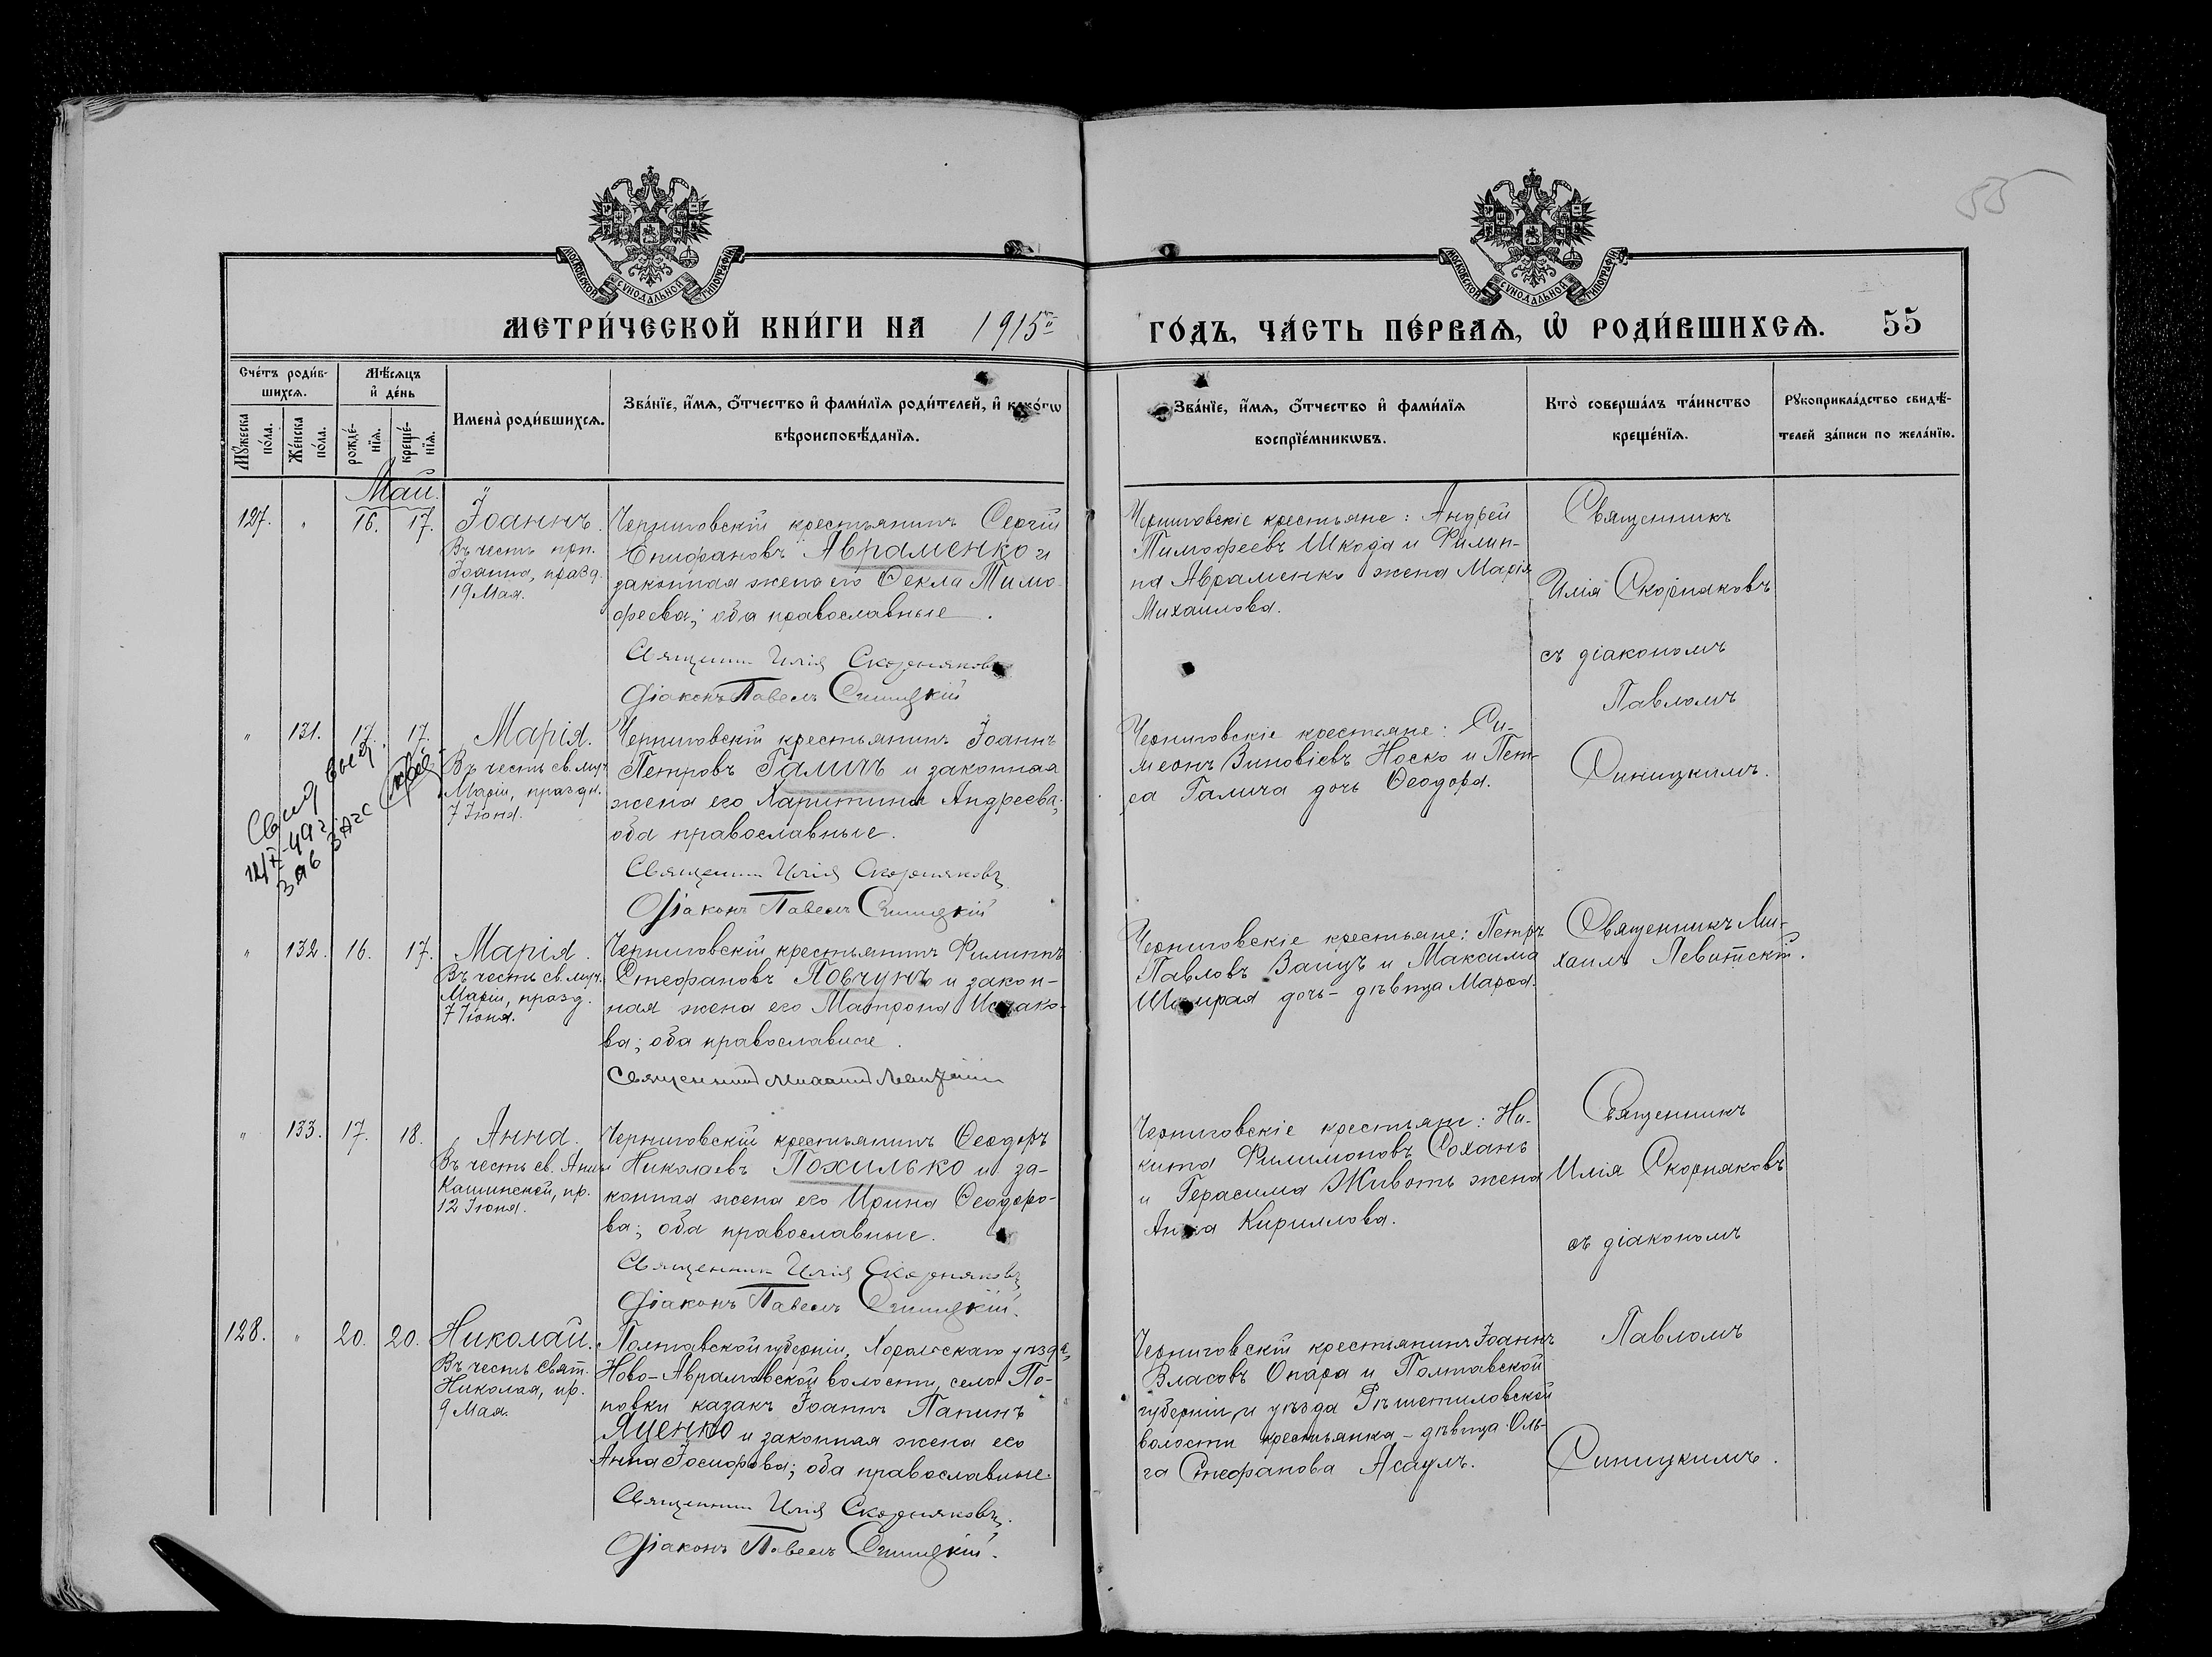 55
МОСКОВСКОЙ СУНОДАЛЬНОЙ ТИПОГРАФІИ
МОСКОВСКОЙ СУНОДАЛЬНОЙ ТИПОГРАФІИ
МЕТРИ́ЧЕСКОЙ КНИ́ГИ НА 1915й
ГО́ДЪ, ЧА́СТЬ ПЕ́РВАѦ, Ѡ҆ РОДИ́ВШИХСѦ. 55
Сче́тъ роди́в-
шихсѧ.
Мꙋ́жеска
по́ла.
Же́нска
по́ла.
Мѣ́сѧцъ
и҆ де́нь
рожде́-
нїѧ.
креще́-
нїѧ.
Имена̀ роди́вшихсѧ.
Зва́нїе, и҆́мѧ, ѻ҆́тчество и҆ фами́лїѧ роди́телей, и҆ како́гѡ
вѣроисповѣ́данїѧ.
Зва́нїе, и҆́мѧ, ѻ҆́тчество и҆ фами́лїѧ
воспрїе́мникѡвъ.
Кто̀ соверша́лъ та́инство
креще́нїѧ.
Рꙋкоприкла́дство свидѣ́-
телей за́писи по жела́нїю.
Май.
127. " 16. 17. Іоаннъ.
Въ честь прп.
Іоанна, празд.
19 Мая.
Черниговскій крестьянинъ Сергій
Епифановъ Авраменко и
законная жена его Ѳекла Тимо-
феева; оба православные.
Священникъ Илія Скорняковъ
Діаконъ Павелъ Синицкій
Черниговскіе крестьяне: Андрей
Тимофеевъ Шкода и Филип-
па Авраменко жена Марія
Михаилова.
Священникъ
Илія Скорняковъ
съ діакономъ
Павломъ
Синицкимъ.
" 131. 17. 17. Марія.
Въ честь св. муч.
Маріи, праздн.
7 Іюня.
Свид
12/X-49 г.
ЗАГС
Черниговскій крестьянинъ Іоаннъ
Петровъ Галичъ и законная
жена его Харитина Андреева;
оба православные.
Священникъ Илія Скорняковъ
Діаконъ Павелъ Синицкій
Черниговскіе крестьяне: Си-
меонъ Зиновіевъ Носко и Пет-
ра Галича дочь Ѳеодора.
" 132. 16. 17. Марія.
Въ честь св. муч.
Маріи, празд.
7 Іюня.
Черниговскій крестьянинъ Филиппъ
Стефановъ Ловчунъ и закон-
ная жена его Матрона Исаако-
ва; оба православные.
Священникъ Михаилъ Левитскій
Черниговскіе крестьяне: Петръ
Павловъ Заицъ и Максима
Шамрая дочь - дѣвица Марѳа.
Священникъ Ми-
хаилъ Левитскій.
" 133. 17. 18. Анна.
Въ честь св. Анны
Кашинской, пр.
12 Іюня.
Черниговскій крестьянинъ Ѳеодоръ
Николаевъ Похилько и за-
конная жена его Ирина Ѳеодоро-
ва; оба православные.
Священникъ Илія Скорняковъ
Діаконъ Павелъ Синицкій.
Черниговскіе крестьяне: Ни-
кита Филимоновъ Сохань
и Герасима Животъ жена
Анна Кириллова.
Священникъ
Илія Скорняковъ
съ діакономъ
Павломъ
Синицкимъ.
128. " 20. 20. Николай.
Въ честь свят.
Николая, пр.
9 Мая.
Полтавской губерніи, Хорольскаго уѣзда,
Ново-Аврамовской волости, села По-
повки казакъ Іоаннъ Папинъ
Яценко и законная жена его
Анна Іосифова; оба православные.
Священникъ Илія Скорняковъ.
Діаконъ Павелъ Синицкій.
Черниговскій крестьянинъ Іоаннъ
Власовъ Опара и Полтавской
губерніи и уѣзда Рѣшетиловской
волости крестьянка - дѣвица Оль-
га Стефанова Асаулъ.